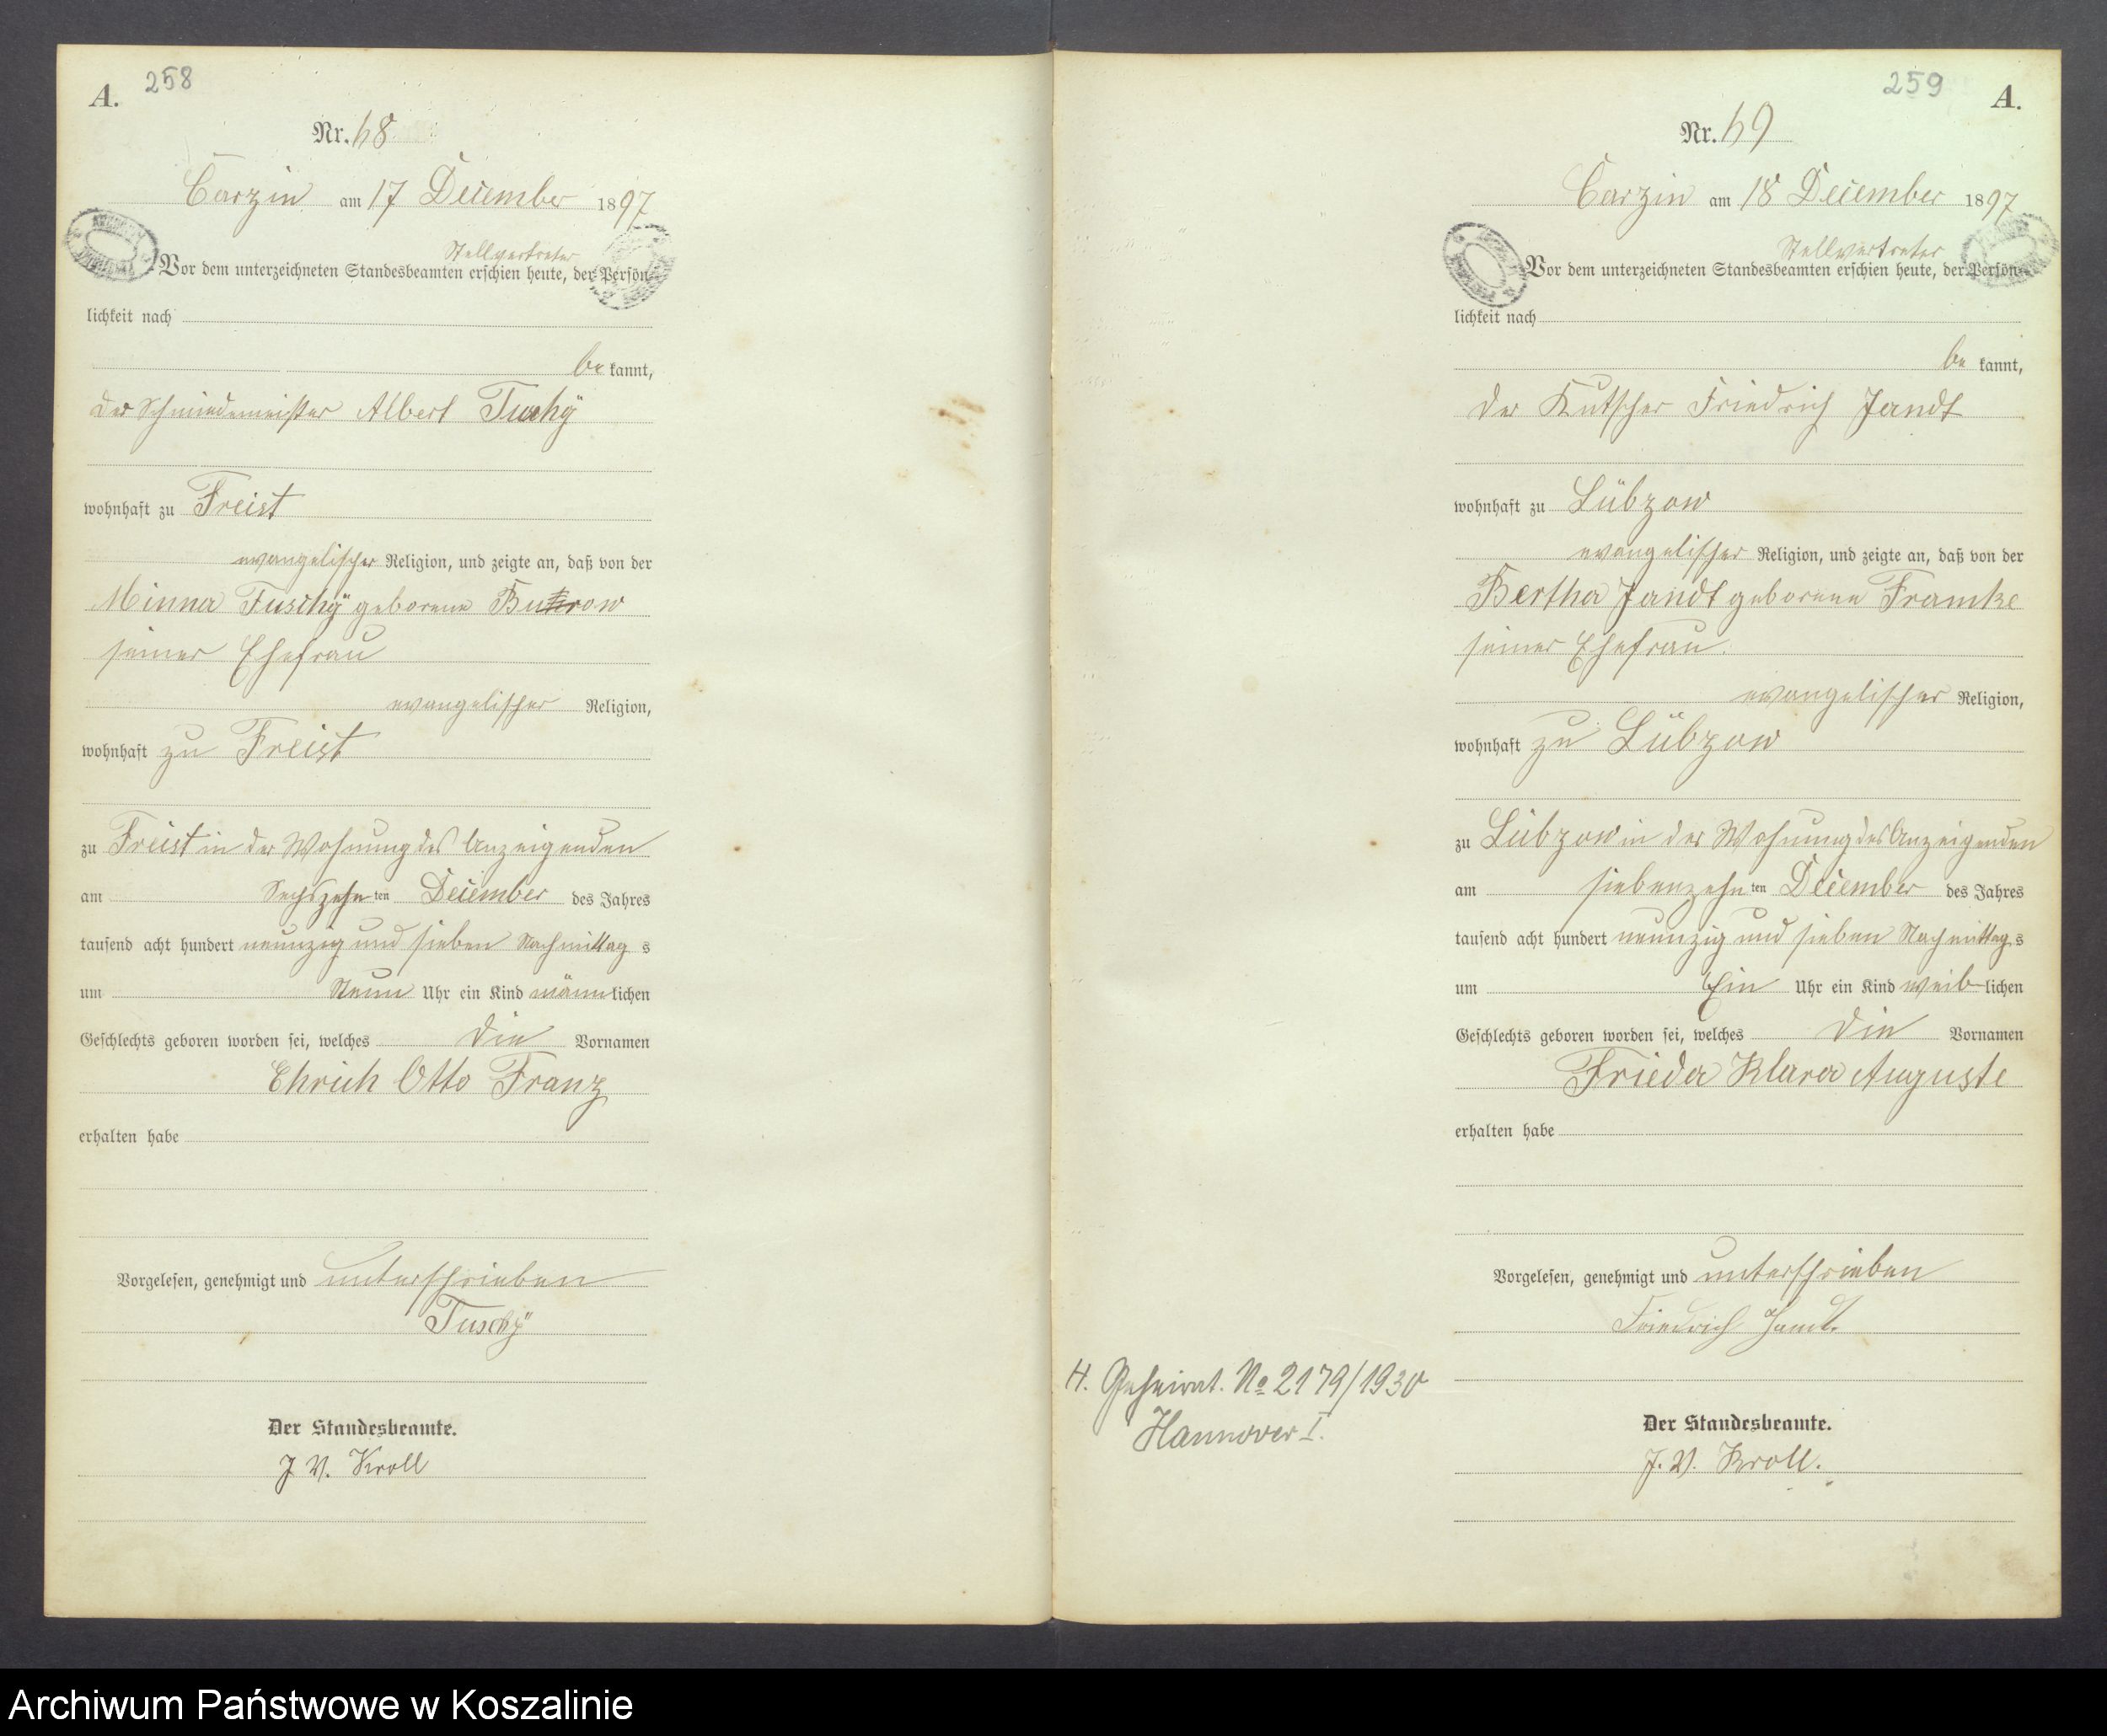 A. 258
Nr. 68
Carzin am 17 December 1897
Stellvertreter
Vor dem unterzeichneten Standesbeamten erschien heute, der Persön-
lichkeit nach
be kannt,
der Schmiedemeister Albert Tuschÿ
wohnhaft zu Freist
evangelischer Religion, und zeigte an, daß von der
Minna Tuschÿ geborene
seiner Ehefrau
evangelischer Religion,
wohnhaft zu Freist
zu Freist in der Wohnung des Anzeigenden
am Sechszehn ten December des Jahres
tausend acht hundert neunzig und sieben Nachmittag s
um Neun Uhr ein Kind männ lichen
Geschlechts geboren worden sei, welches die Vornamen
Ehrich Otto Franz
erhalten habe
Vorgelesen, genehmigt und unterschrieben
Tuschÿ
Der Standesbeamte.
J. V. Kroll
259 A.
Nr. 69
Carzin am 18 December 1897
Stellvertreter
Vor dem unterzeichneten Standesbeamten erschien heute, der Persön-
lichkeit nach
be kannt,
der Kutscher Friedrich Jandt
wohnhaft zu Lübzow
evangelischer Religion, und zeigte an, daß von der
Bertha Jandt geborene Framke
seiner Ehefrau.
evangelischer Religion,
wohnhaft zu Lübzow
zu Lübzow in der Wohnung des Anzeigenden
am siebenzehn ten December des Jahres
tausend acht hundert neunzig und sieben Nachmittag s
um Ein Uhr ein Kind weib lichen
Geschlechts geboren worden sei, welches die Vornamen
Frieda Klara Auguste
erhalten habe
Vorgelesen, genehmigt und unterschrieben
Friedrich Jandt.
H. Geheirat. No 2179/1930
Hannover I.
Der Standesbeamte.
J. V. Kroll.
Archiwum Państwowe w Koszalinie